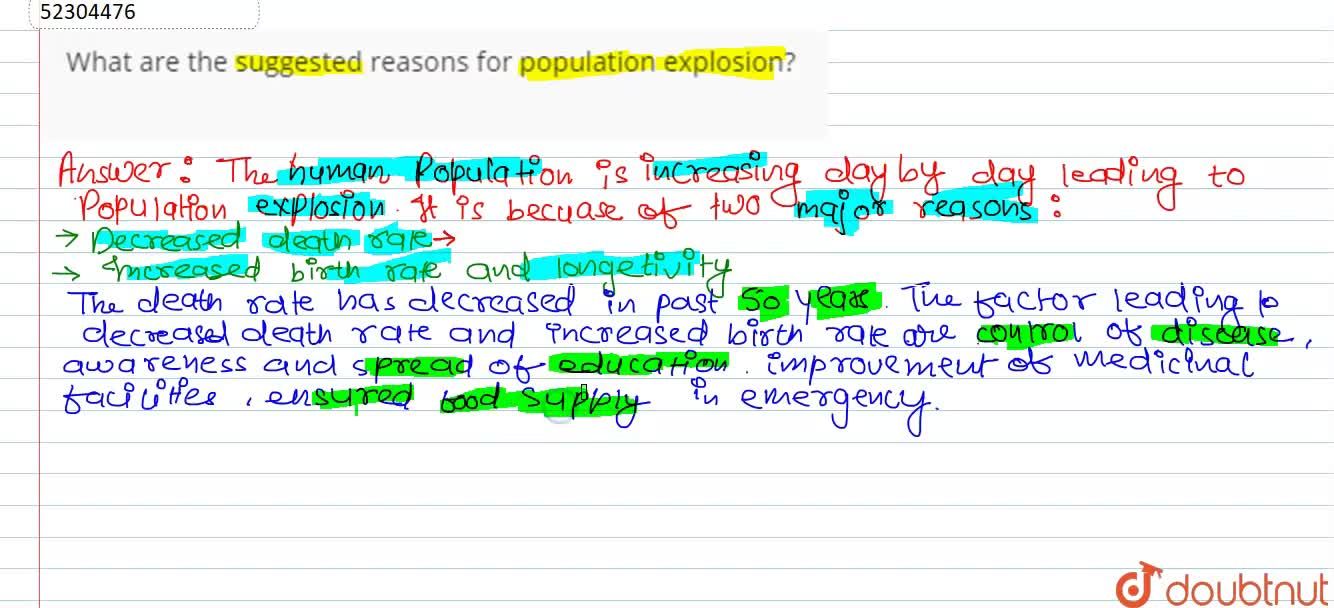 52304476
What are the suggested reasons for population explosion?
Answer: The human Population is increasing day by day leading to
Population explosion. It is becuase of two major reasons:
→ Decreased death rate →
→ Increased birth rate and longetivity
The death rate has decreased in past 50 years. The factor leading to
decreased death rate and increased birth rate are control of disease,
awareness and spread of education. improvement of medicinal
facilities, ensured food supply in emergency.
doubtnut